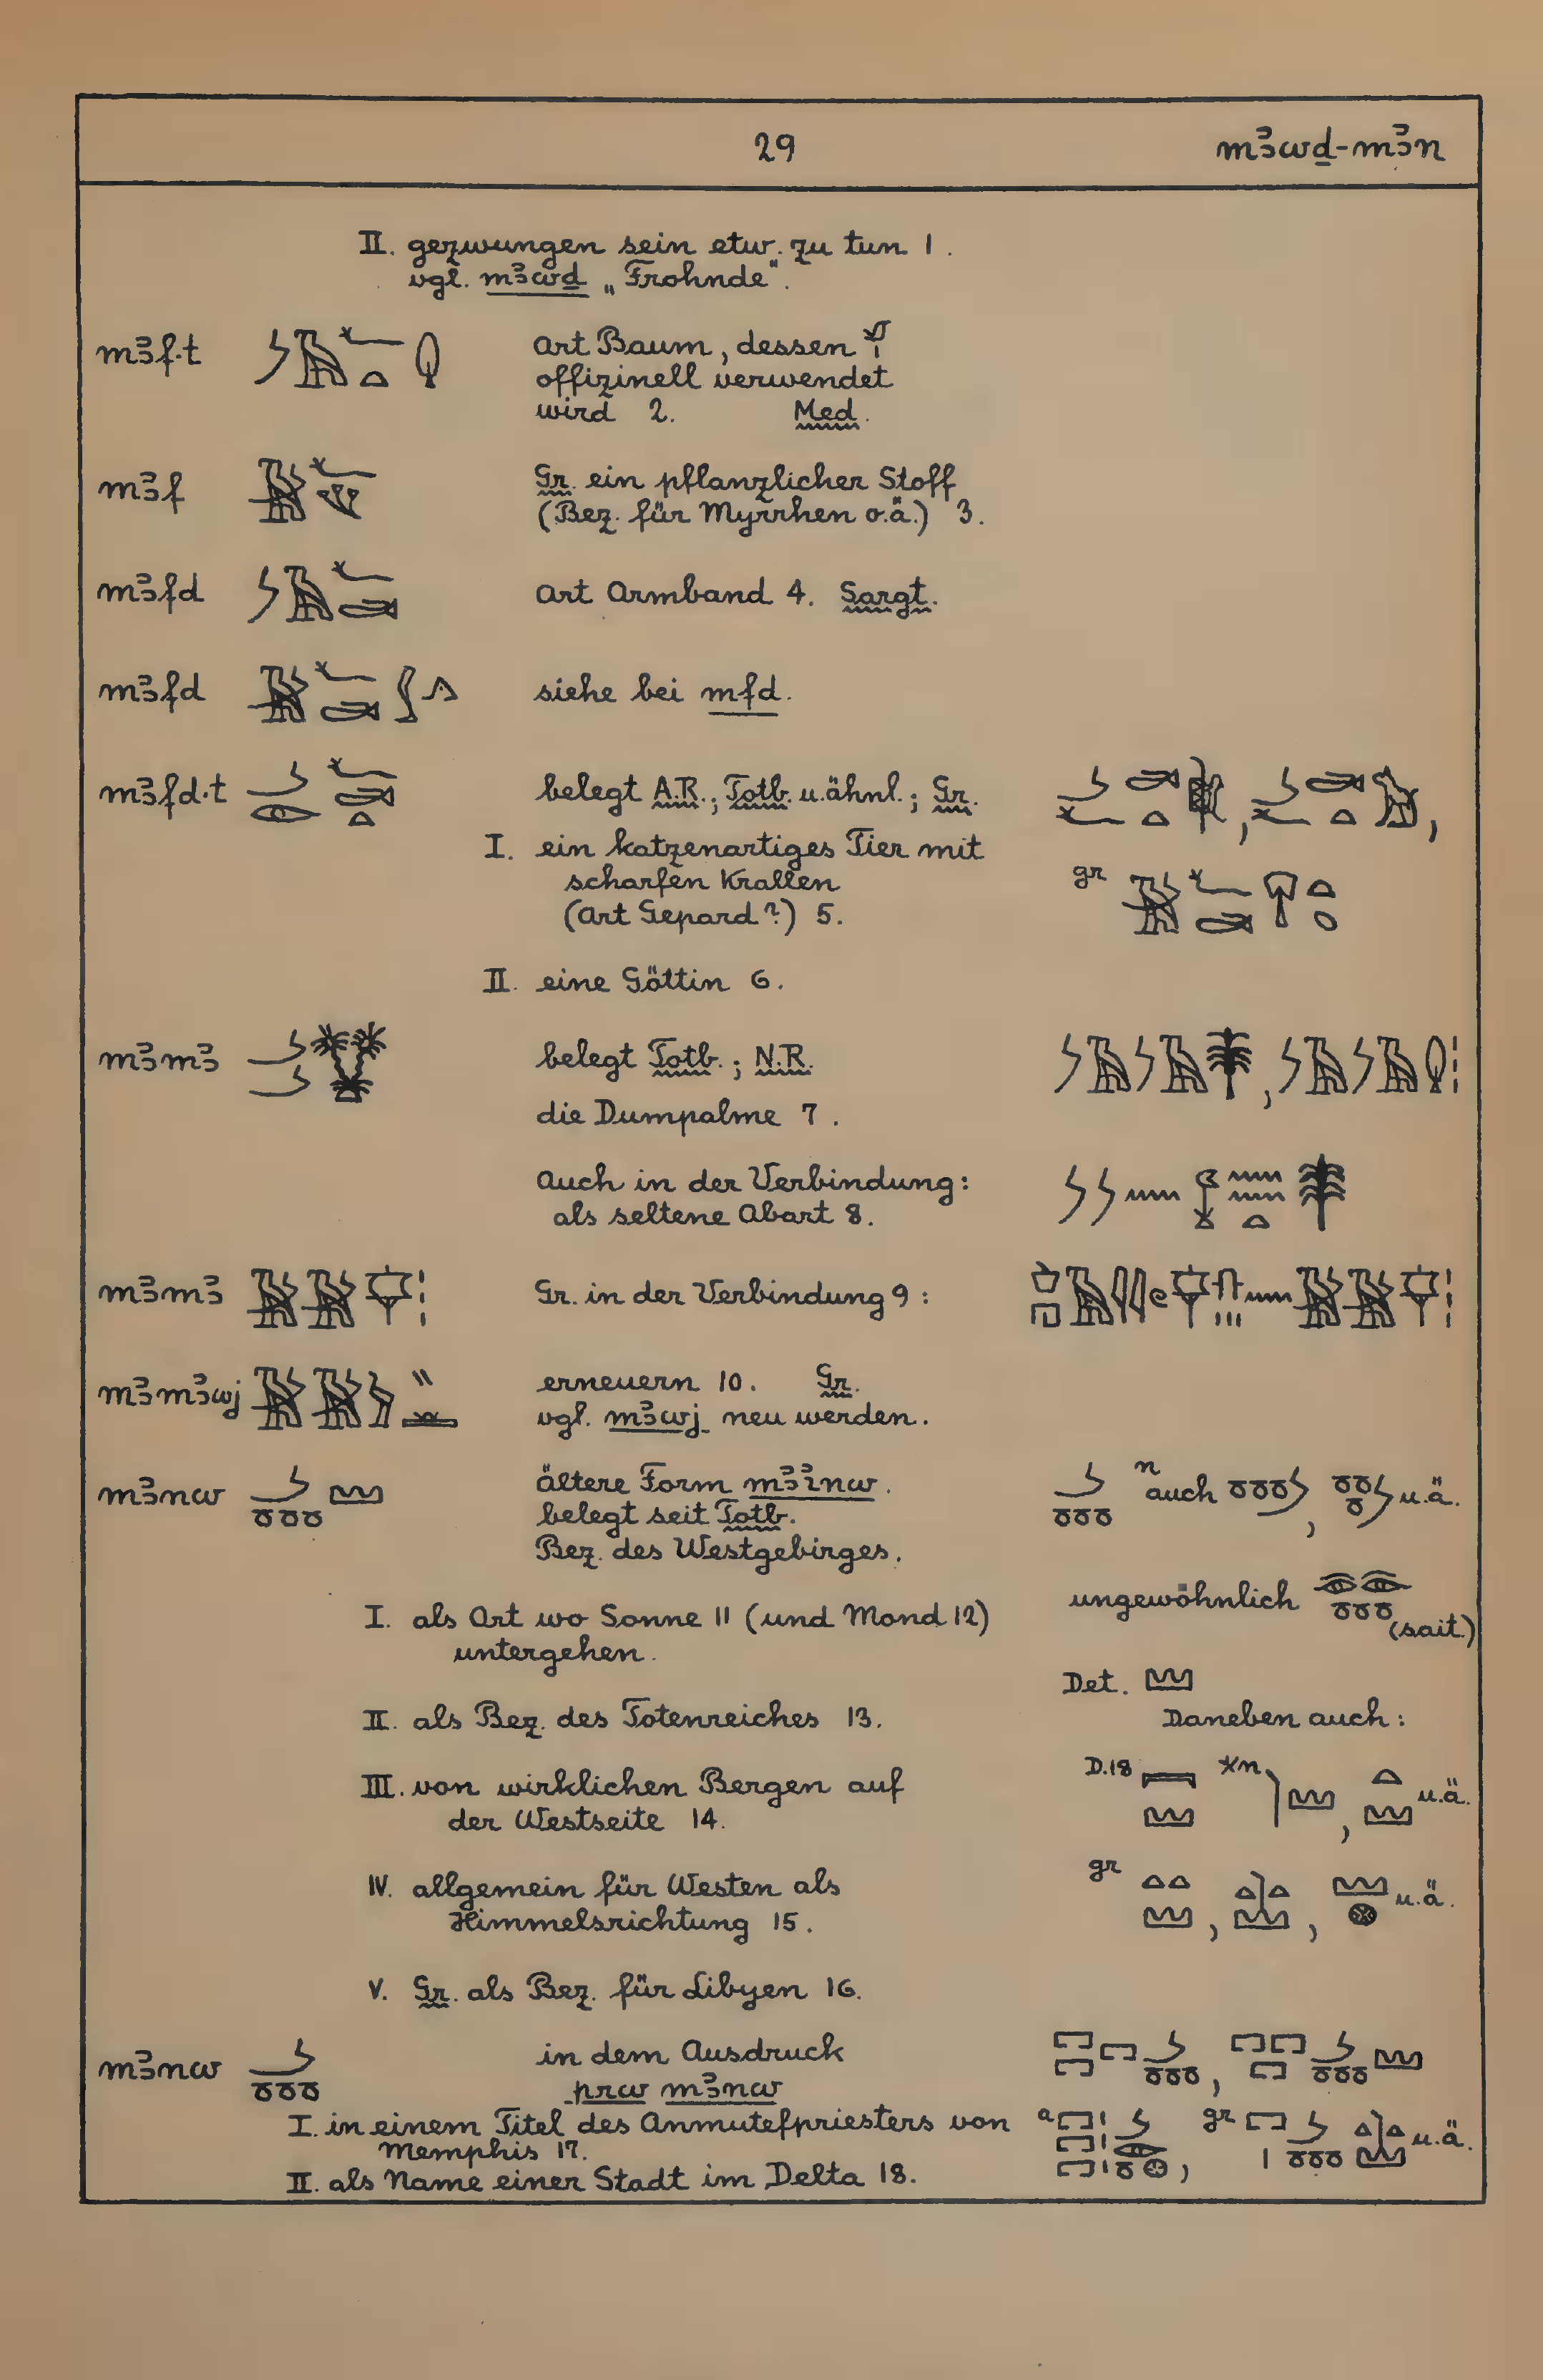 29
mꜣwḏ-mꜣn
II. gezwungen sein etw. zu tun 1.
vgl. mꜣwḏ „Frohnde".
mꜣf·t Art Baum, dessen
offizinell verwendet
wird 2. Med.
mꜣf Gr. ein pflanzlicher Stoff
(Bez. für Myrrhen o.ä.) 3.
mꜣfd Art Armband 4. Sargt.
mꜣfd siehe bei mfd.
mꜣfd·t belegt A.R.; Totb. u. ähnl.; Gr.
I. ein katzenartiges Tier mit
scharfen Krallen
gr
(Art Gepard?) 5.
II. eine Göttin 6.
mꜣmꜣ belegt Totb.; N.R.
die Dumpalme 7.
Auch in der Verbindung:
als seltene Abart 8.
mꜣmꜣ Gr. in der Verbindung 9:
mꜣmꜣwj erneuern 10. Gr.
vgl. mꜣwj neu werden.
mꜣnw ältere Form mꜣꜣnw.
n auch , u.ä.
belegt seit Totb.
Bez. des Westgebirges.
ungewöhnlich
(sait.)
I. als Ort wo Sonne 11 (und Mond 12)
untergehen.
Det.
II. als Bez. des Totenreiches 13.
Daneben auch:
III. von wirklichen Bergen auf
D.18 *n , u.ä.
der Westseite 14.
IV. allgemein für Westen als
gr , , u.ä.
Himmelsrichtung 15.
V. Gr. als Bez. für Libyen 16.
mꜣnw in dem Ausdruck
prw mꜣnw
I. in einem Titel des Anmutefpriesters von
a , gr u.ä.
Memphis 17.
II. als Name einer Stadt im Delta 18.